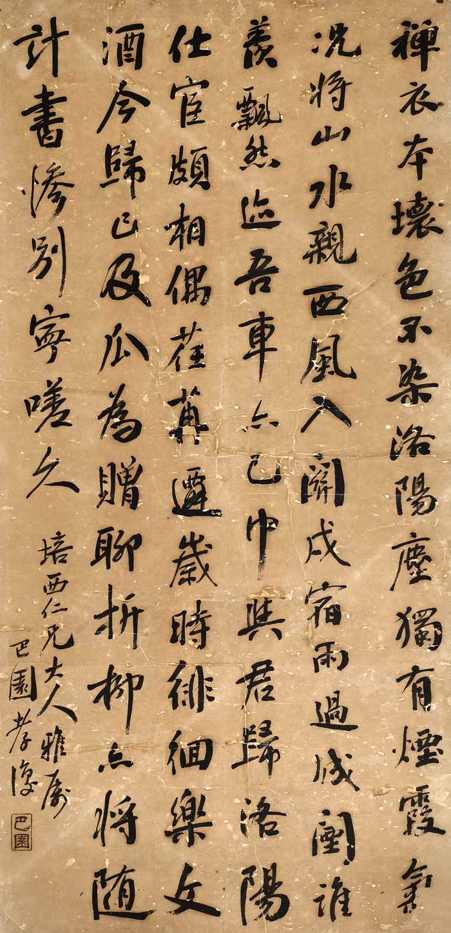 禅衣本壞色不染洛陽塵獨有煙霞氣
况將山水親西風入關戍宿雨過城闉誰
羨飄然迹吾車亦已巾與君歸洛陽
仕宦頗相偶荏苒遷歲時徘徊樂文
酒今歸已及瓜為贈聊折柳亦將随
計書惨别寧嗟久
培西仁兄大人雅屬
巴園孝
巴園